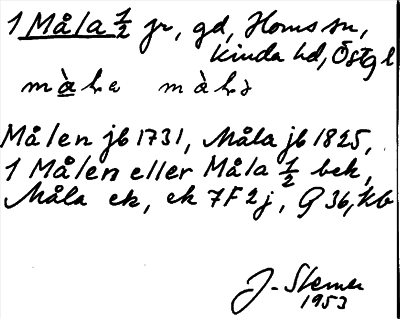 1 Måla 1/2 jr, gd, Horns sn,
Kinda hd, Östgl
Målen jb 1731, Måla jb 1825,
1 Målen eller Måla 1/2 bek,
Måla ek, ek 7F2j, G 36, kb
1953